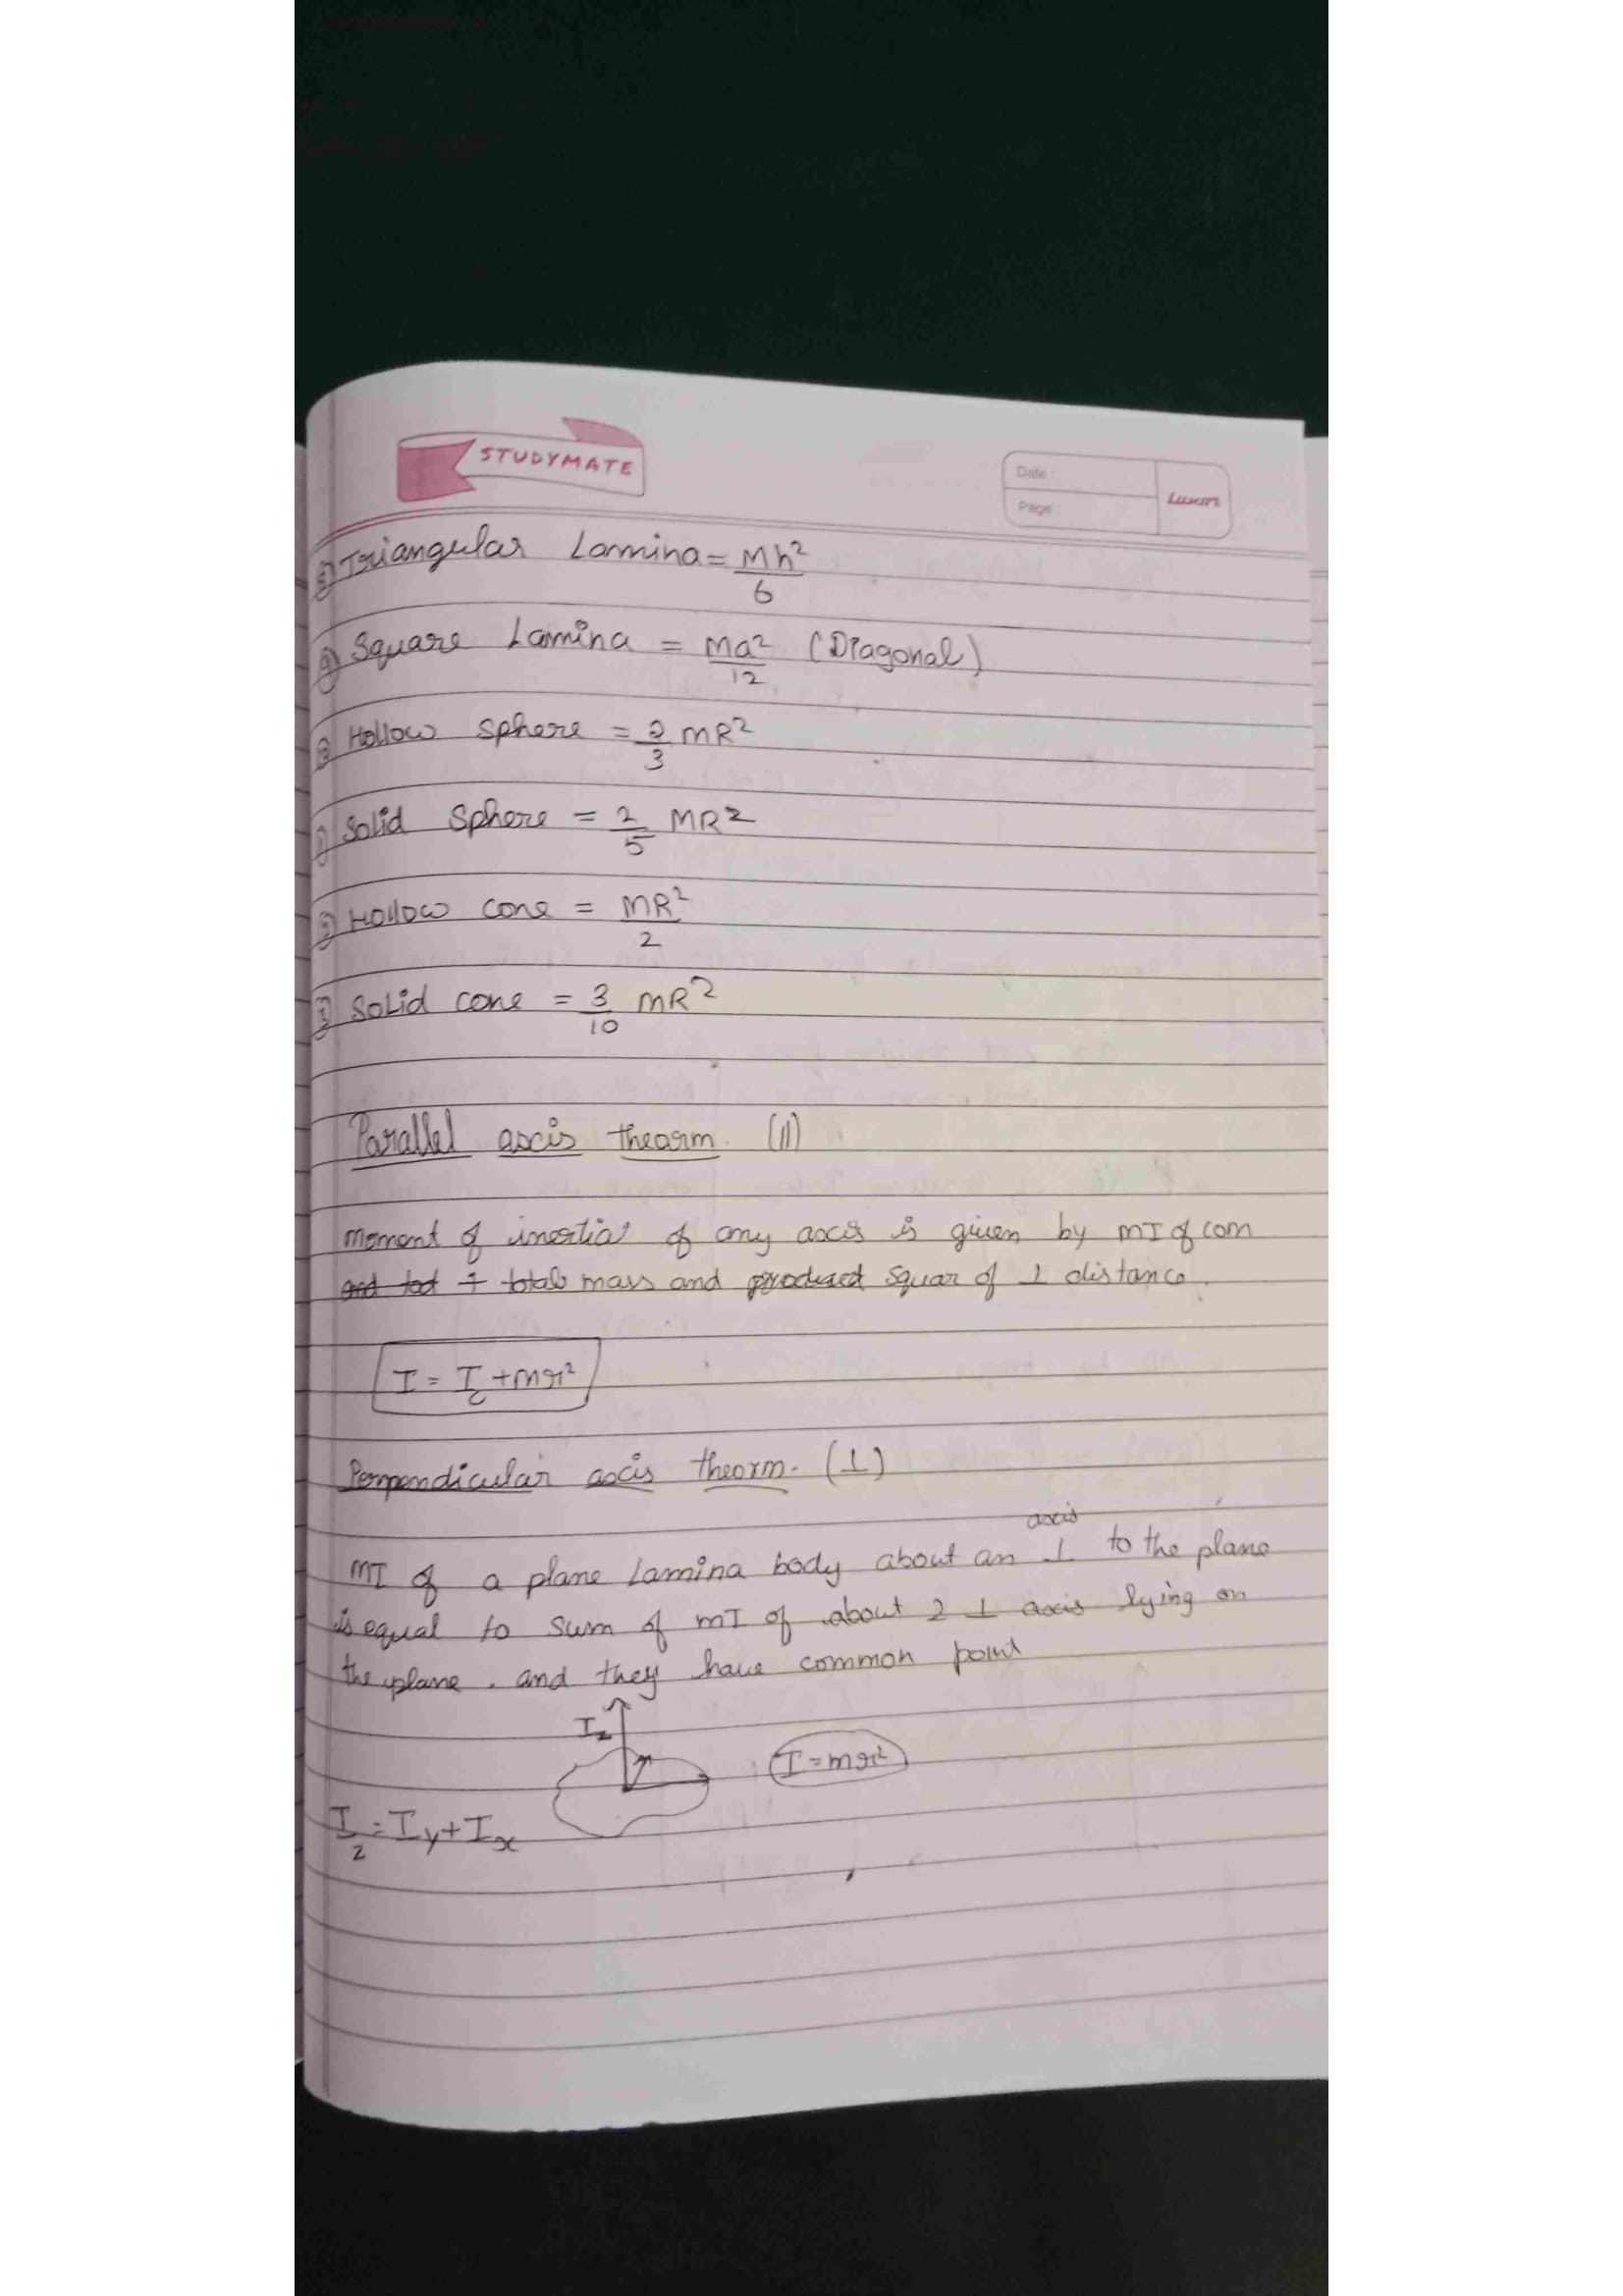 STUDYMATE
Date :
Page :
Luxor
Triangular Lamina = Mh²/6
Square Lamina = Ma²/12 (Diagonal)
Hollow sphere = 2/3 MR²
Solid Sphere = 2/5 MR²
Hollow cone = MR²/2
Solid cone = 3/10 MR²
Parallel axis thearm. (||)
Moment of inertia of any axis is given by MI of com
+ total mass and squar of ⊥ distance.
I = I_c + mr²
Perpendicular axis theorm. (⊥)
axis
MI of a plane Lamina body about an ⊥ to the plane
is equal to sum of MI of about 2 ⊥ axis lying on
the plane. and they have common point
I_z
I = mr²
I_z = I_y + I_x